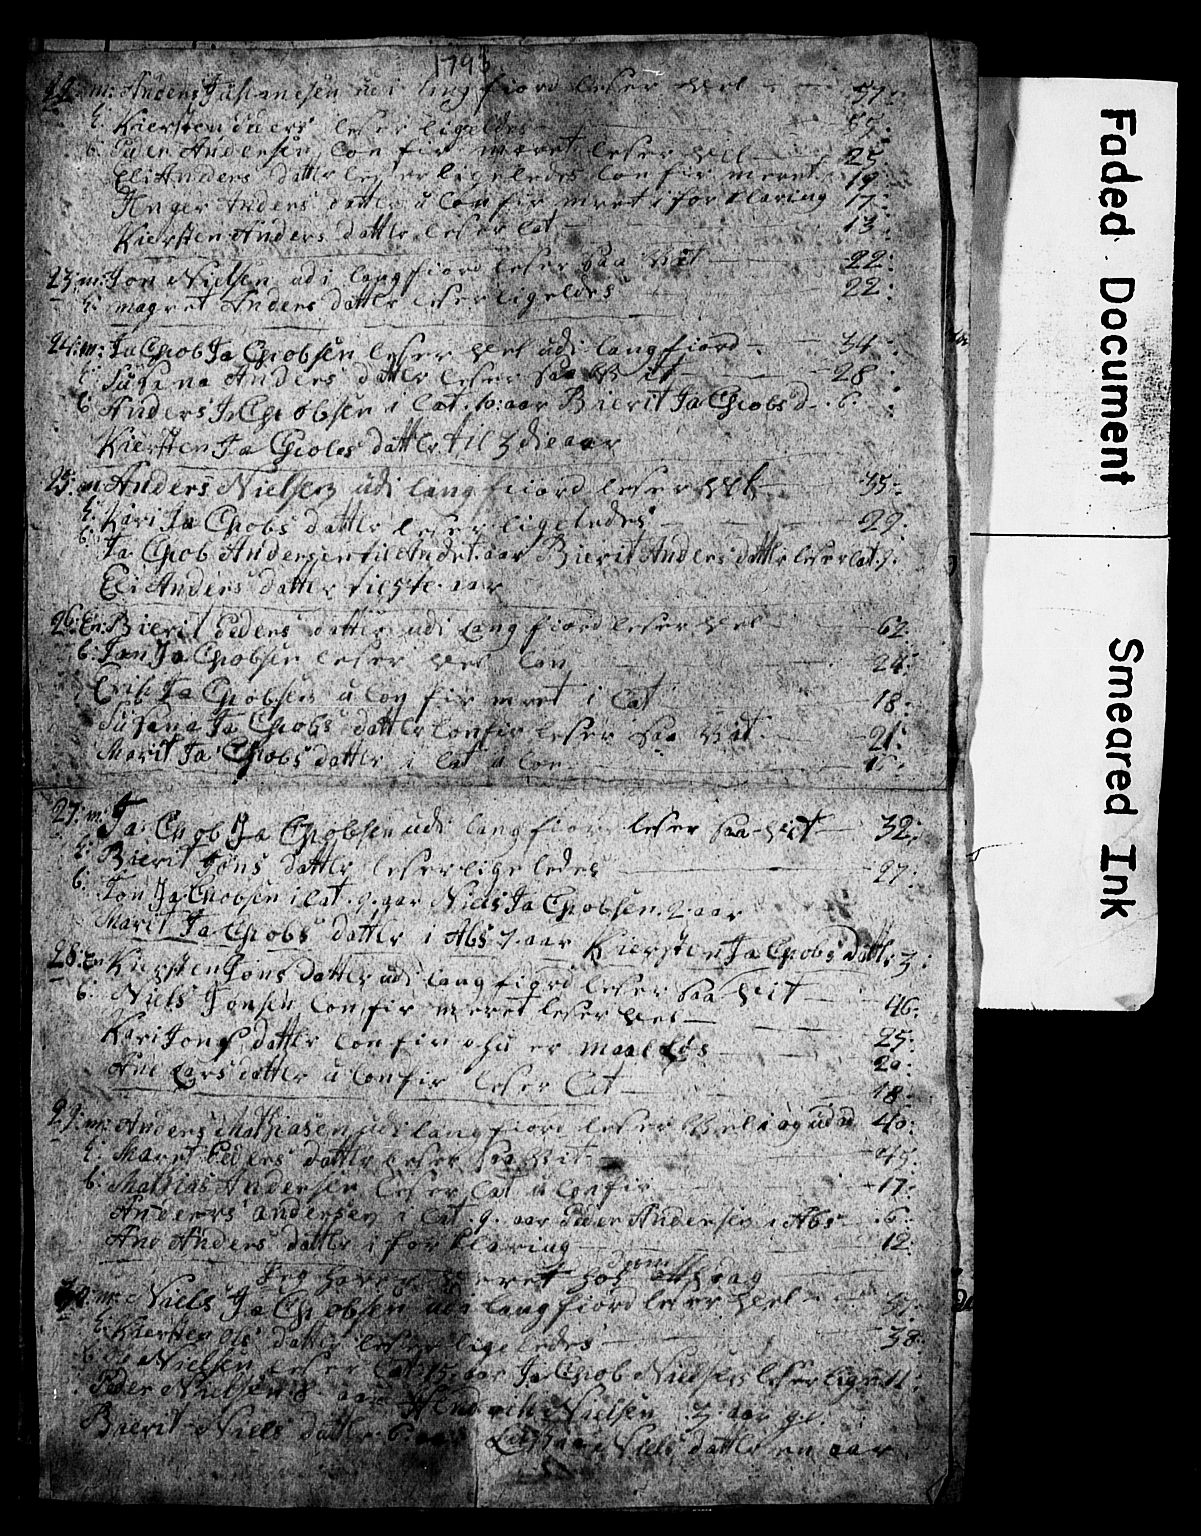 1793
22: m: Anders Jusiansen udi langfiord leser vel 57:
k: Kiersten leser ligeledes 65:
b: Peder Andersen Confir meret leser vel 25:
Eli Anders datter leser ligeledes Confir meret 19:
Inger Anders datter u Confir meret i forklaring 17:
Kiersten Anders datter leser Cat 13:
23: m: Jon Nielsen udi langfiord leser saa vit 22:
k: magret Anders datter leser ligeledes 22:
24: m: JaChob JaChobsen leser vel udi langfiord 34:
k: Susana Anders datter leser saa vit 28:
b: Anders JaChobsen i Cat. 10: aar Bierit JaChobs d. 6:
Kiersten JaChobs datter til 3die aar
25: m: Anders Nielsen udi langfiord leser vel 35:
k: Kari JaChobs datter leser ligeledes 29:
b: JaChob Andersen til Andet aar Bierit Anders datter leser Cat. 7.
Eli Anders datter fieste aar
26: En: Bierit Peders datter udi Langfiord leser vel 62:
b: Jon JaChobsen leser vel Con 24:
Erik JaChobsen u Confirmeret i Cat 18:
Susana JaChobs datter Confir leser saa vit 21:
Marit JaChobs datter i Cat u Con 15:
27: m: JaChob JaChobsen udi langfiord leser saa vit 32:
k: Bierit Jons datter leser ligeledes 27:
b: Jon JaChobsen i Cat. 9. aar Niels JaChobsen 2 aar
Marit JaChobs datter i Abs 7. aar Kiersten JaChobs datter 3:
28: En Kiersten Jons datter udi langfiord leser saa vit 46:
b: Niels Jonsen Confir meret leser vel 25:
Kari Jons datter Confir hu er maalløs 20:
Ane Lars datter u Confir leser Cat 18:
29: m: Anders Mathiasen udi langfiord leser vel i og ud 40:
k: Maret Peders datter leser saa vit 45:
b: Mathias Andersen leser Cat u Confir 17:
Anders andersen i Cat. 9. aar Peder Andersen i Abs 6:
Ane Anders datter i forklaring 12:
Jeg haver veret hoß dem
30: m: Niels JaChobsen udi langfiord leser vel
k: Kiersten Ols datter leser ligeledes 38:
b: Ol Nielsen leser Cat 15. aar JaChob Nielsen leser lige 11:
Peder Nielsen 8 aar Hendrich Nielsen 3 aar
Bierit Niels datter 6 aar Niels datter en aar
Faded Document
Smeared Ink